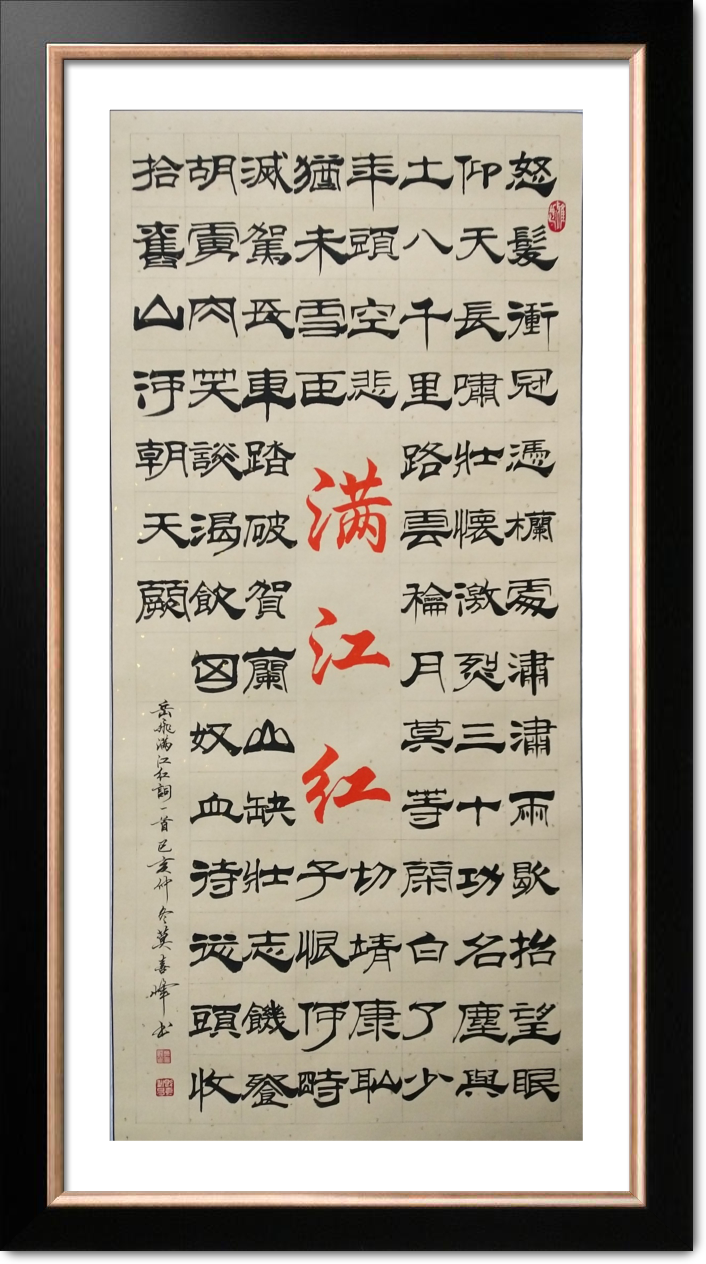 怒髮衝冠憑欄處潚潚雨歇抬望眼
仰天長嘯壯懷激烈三十功名塵與
土八千里路雲龢月莫等閑白了少
年頭空悲
切靖康恥
猶未雪臣
子恨何時
满江红
滅駕長車踏破賀蘭山缺壯志饑餐
胡虜肉笑談渴飲匈奴血待從頭收
拾舊山河朝天闕
岳飛满江红詞一首己亥仲冬莫喜峰书